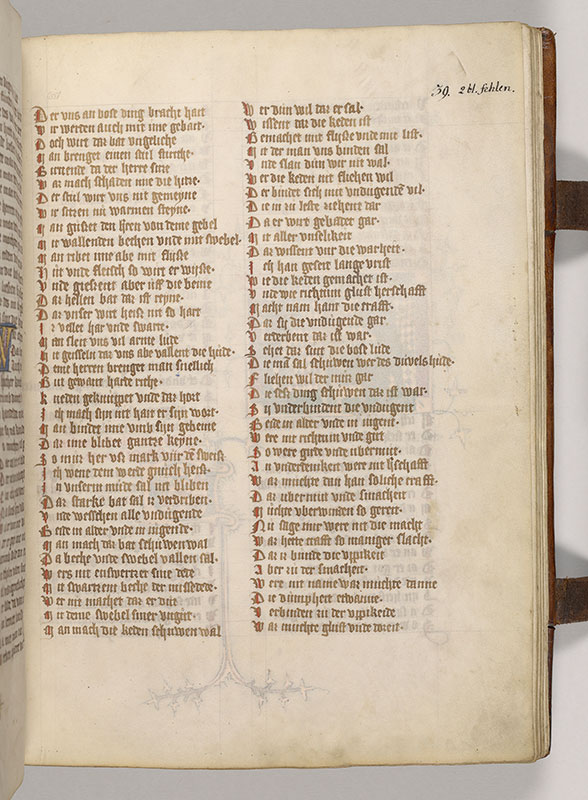 39. 2 bl. fehlen.
Der uns an bose ding bracht hait
Wir werden auch mit ime gebart
Doch wirt dar bat
Man brenget einen stul
da der herre sine
War mach schaden ime die hitze
Der stul wirt uns nit gemeyne
Wir sitzen in warmen steyne
Man guszet den hren von deme gebel
Mit wallenden bechen unde mit swebel
Man ribet ime abe mit flisse
Hut unde fleisch so wirt er wisse
Unde griesent aber uff die beine
Dar hellen bat daz ist reyne
Dar unser wirt heist nit so hart
Ir vallet har unde swarte
Man slett uns vil arme lude
Mit gisseln daz uns abe vallent die hude
Deme herren brenget man snellich
Sin gewant harte riche
Kneden geknuppet unde dar hort
Ich mach sijn nit hart er sijn wort
Man bindet ime umb sijn gebeine
Daz ime blibet gantze keyne
So mir her
Ich wene deme werde gnuch heisz
In unserm mude sal nit bliben
Daz starke bat sal iz verdriben
Unde weschen alle undugende
Beide in alder unde in jugende
Man mach daz bat schuwen wal
Da beche unde swebel vallen sal
Wers nit enswertzet sine dede
Mit swartzem beche der missedede
Wer nit machet dar er
Mit deme swebel siner
Man mach die keden schuwen wal
Wer dun wil daz er sal
Wissent daz die keden ist
Gemachet mit flisse unde mit list
Mit der man uns binden sal
Unde slan dun wir nit wal
Wer die keden nit fliehen wil
Der bindet sich mit undugende vil
Die in zu leste ziehent dar
Da er wirt gebadet gar
Mit aller unselikeit
Daz wissent vur die warheit
Ich han geseit lange vrist
Wie die keden gemachet ist
Unde wie richtum glust herschafft
Macht nam hant die crafft
Daz sij die undugende gar
Verderbent daz ist war
Sehet daz sint die bose lude
Die man sal schuwen wer des duvels hude
Fliehen wil der mir gar
Die sesz ding schuwen daz ist war
Sij underbindent die undugent
Beide in alder unde in jugent
Were nie richtum unde gut
So were girde unde ubermut
In underdeniken were nie hschafft
War muchte dan han soliche crafft
Daz ubermut unde smacheit
Muchte uberwinden so gereit
Nu sage mir were nit die macht
War hette crafft so maniger slacht
Daz iz binde die uppikeit
Aber zu der smacheit
Were nit name war muchte danne
Die dumpheit etwanne
Verbinden zu der uppikeide
War muchte glust unde dreit